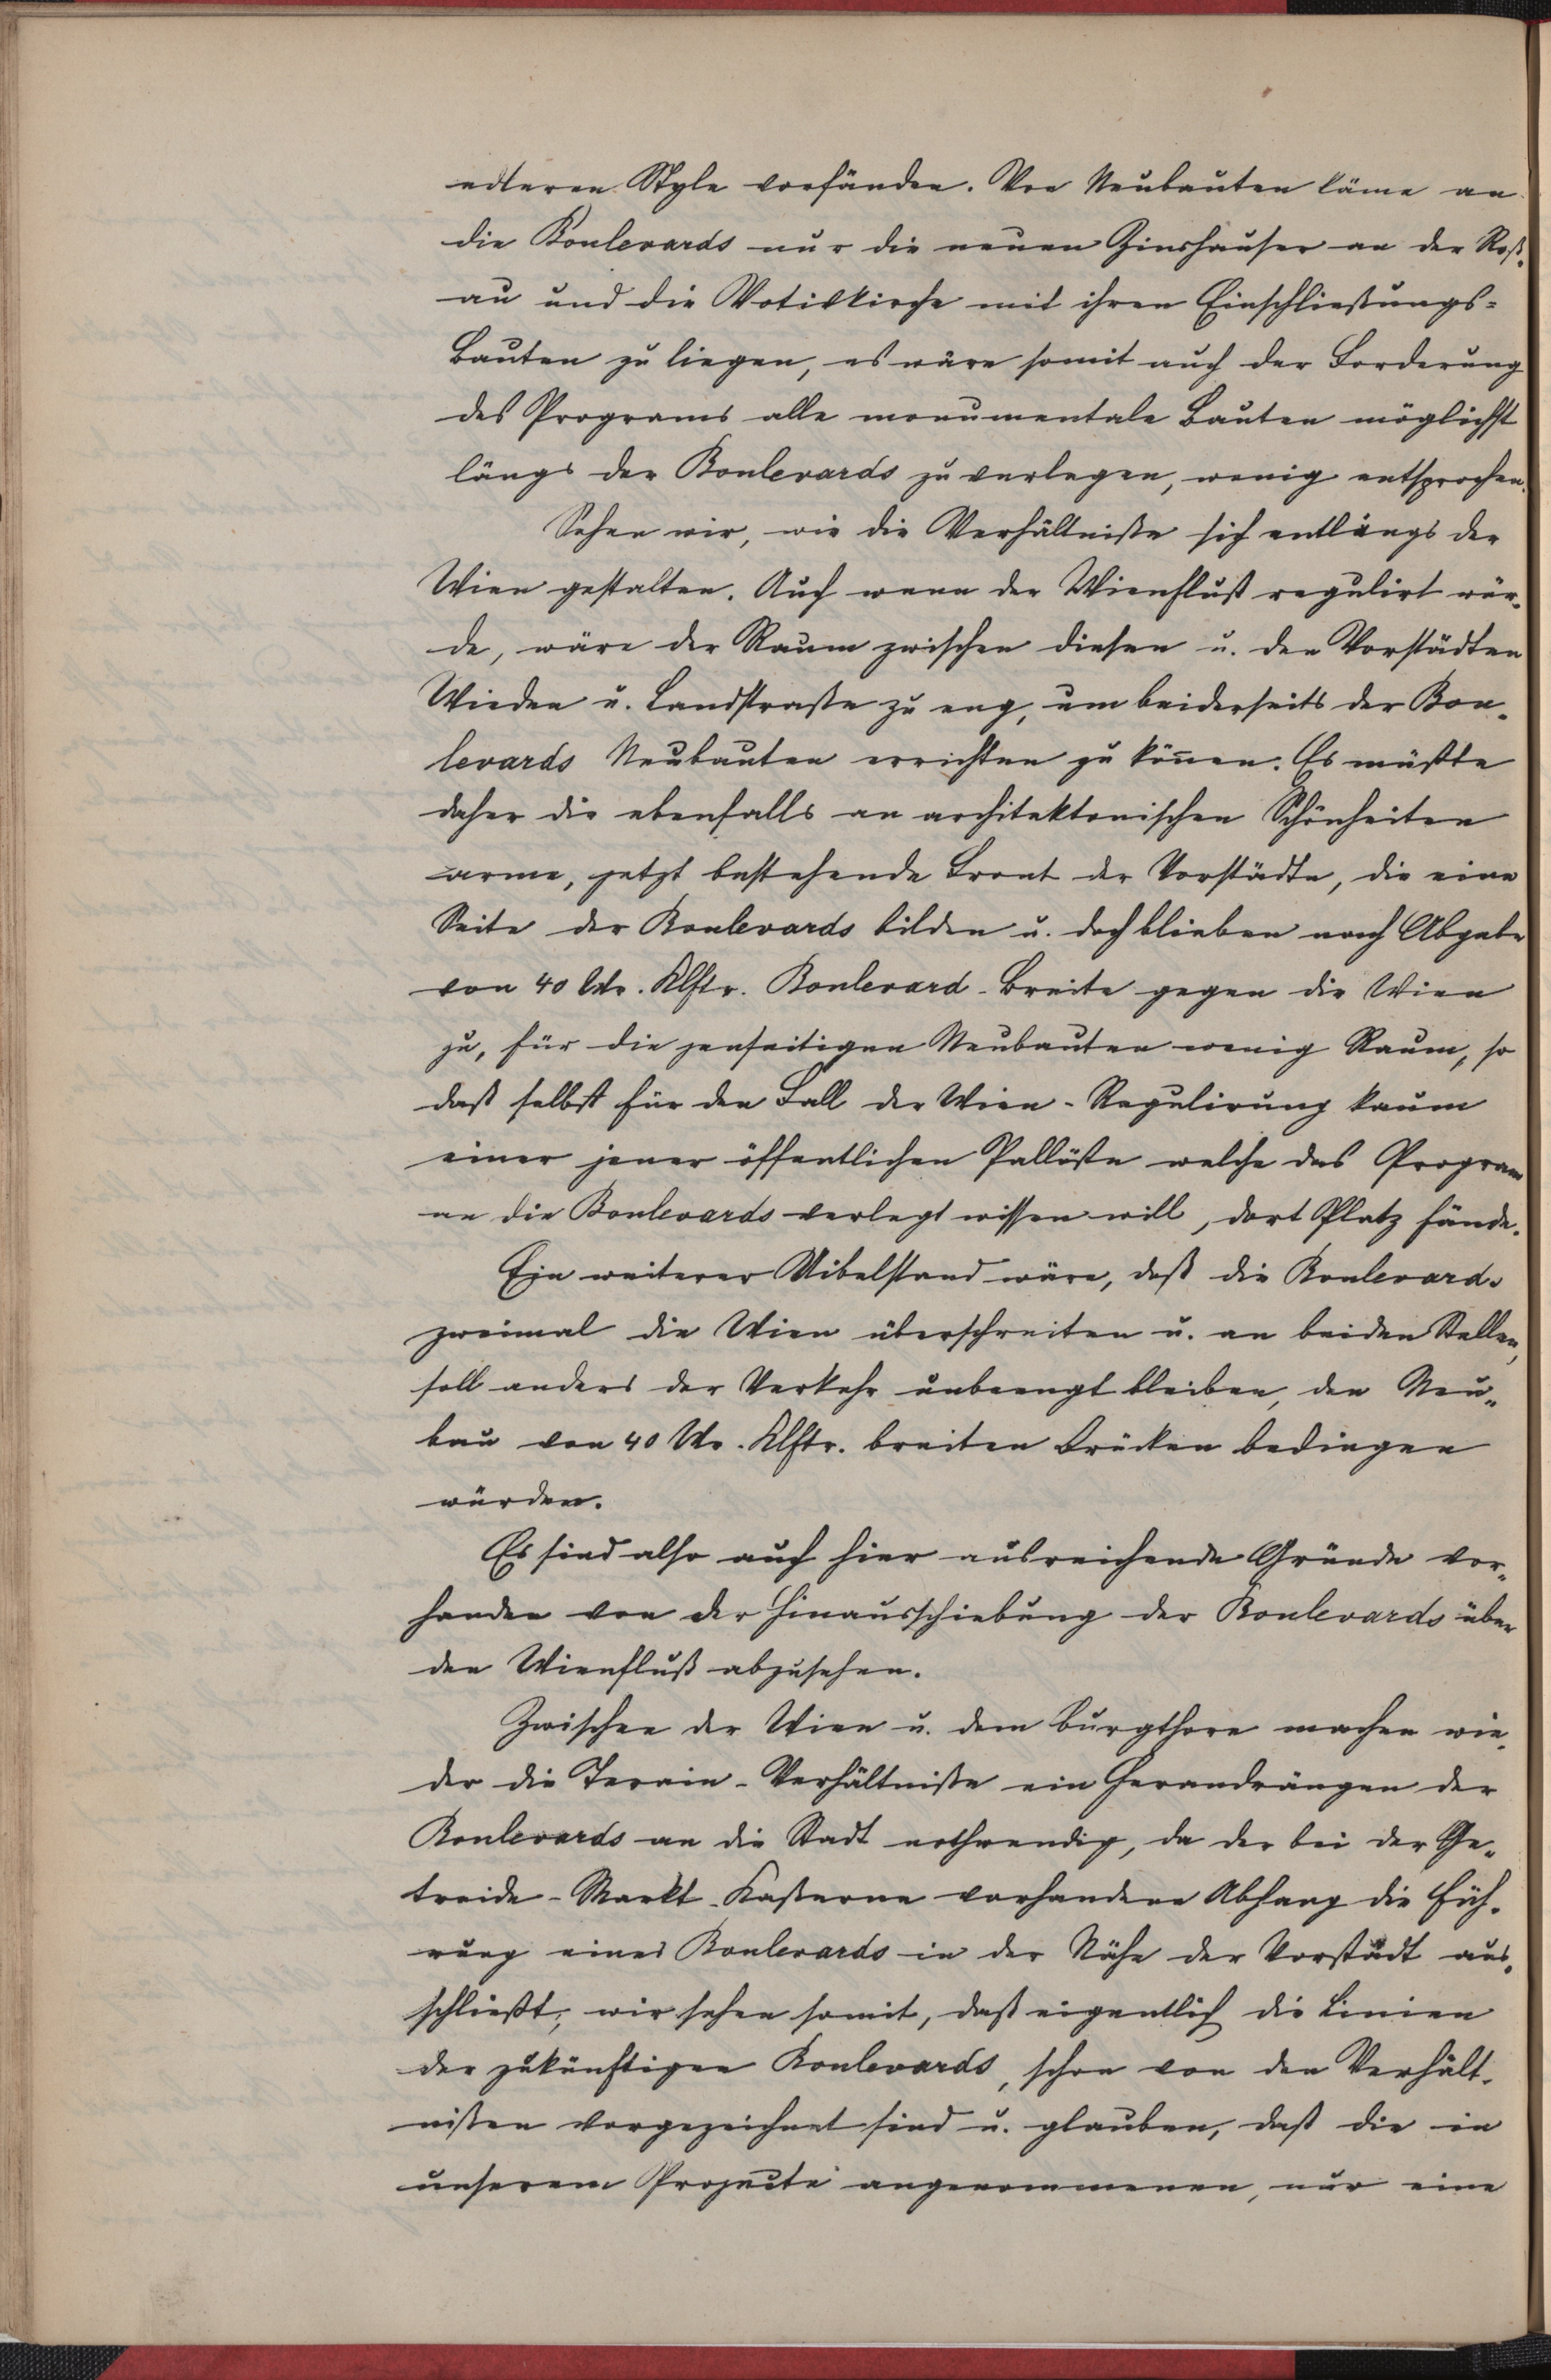 edleren Style vorfänden. Von Neubauten käme an
die Boulevards nur die neuen Zinshäuser an der Roß-
au und die Votivkirche mit ihren Einschließungs-
Bauten zu liegen, es wäre somit auch der Forderung
des Programs alle monumentale Bauten möglichst
längs der Boulevards zu verlegen, wenig entsprochen.
Sehen wir, wie die Verhältniße sich entlängs der
Wien gestalten. Auch wenn der Wienfluß regulirt wür-
de, wäre der Raum zwischen diesen u. den Vorstädten
Wieden u. Landstraße zu eng, um beiderseits der Bou-
levards Neubauten errichten zu kön̄en. Es müßte
daher die ebenfalls an architektonischen Schönheiten
arme, jetzt bestehende Front der Vorstädte, die eine
Seite der Boulevards bilden u. doch blieben nach Abgabe
von 40 Wr. Klftr. Boulevard-Breite gegen die Wien
zu, für die jenseitigen Neubauten wenig Raum, so
daß selbst für den Fall der Wien-Regulirung kaum
einer jener öffentlichen Palläste welche das Program
an die Boulevards verlegt wissen will, dort Platz fände.
Ein weiterer Uibelstand wäre, daß die Boulevards
zweimal die Wien überschreiten u. an beiden Stellen,
soll anders der Verkehr unbeengt bleiben, den Neu-
bau von 40 Wr. Klftr. breiten Brücken bedingen
würden.
Es sind also auch hier ausreichende Gründe vor-
handen von der Hinausschiebung der Boulevards über
den Wienfluß abzusehen.
Zwischen der Wien u. dem Burgthore machen wie-
der die Terain-Verhältniße ein Herandrängen der
Boulevards an die Stadt nothwendig, da der bei der Ge-
treide-Markt-Kaßerne vorhandene Abhang die Füh-
rung eines Boulevards in der Nähe der Vorstadt aus-
schließt; wir sehen somit, daß eigentlich die Linien
der zukünftigen Boulevards, schon von den Verhält-
nißen vorgezeichnet sind u. glauben, daß die in
unserem Projecte angenommenen, nur eine